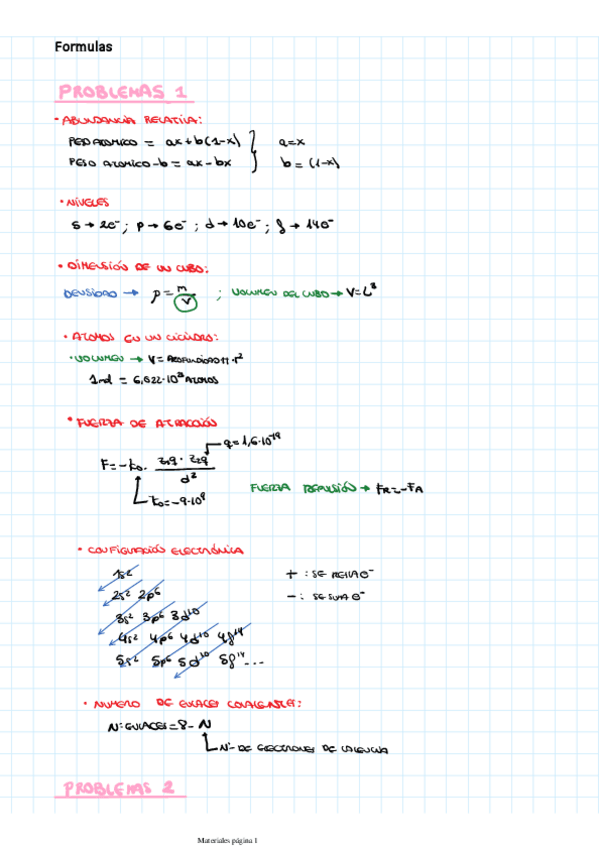 Formulas
PROBLEMAS 1
- ABUNDANCIA RELATIVA:
PESO ATOMICO = ax + b(1-x) } a=x
PESO ATOMICO - b = ax - bx } b = (1-x)
• NIVELES
s → 2e⁻ ; p → 6e⁻ ; d → 10e⁻ ; f → 14e⁻
• DIMENSIÓN DE UN CUBO:
DENSIDAD → ρ = m/V ; VOLUMEN DEL CUBO → V = L³
• ATOMOS EN UN CILINDRO:
• VOLUMEN → V = PROFUNDIDAD·π·r²
1mol = 6,022·10²³ ATOMOS
• FUERZA DE ATRACCIÓN
q = 1,6·10⁻¹⁹
F = -k₀· z₁q · z₂q / d²
k₀ = -9·10⁹
FUERZA REPULSIÓN → FR = -FA
• CONFIGURACIÓN ELECTRÓNICA
1s² + : SE RESTA e⁻
2s² 2p⁶ - : SE SUMA e⁻
3s² 3p⁶ 3d¹⁰
4s² 4p⁶ 4d¹⁰ 4f¹⁴
5s² 5p⁶ 5d¹⁰ 5f¹⁴ ...
• NUMERO DE ENLACES COVALENTES:
Nº ENLACES = 8 - N
Nº DE ELECTRONES DE VALENCIA
PROBLEMAS 2
Materiales página 1